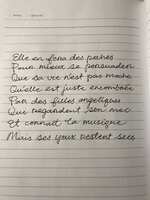 Elle en fera des pechés
Pour mieux se persuader
Que sa vie n'est pas moche
Qu'elle est juste encombrée
Par des filles angéliques
Qui regardent son mec
Et connait la musique
Mais ses yeux restent secs